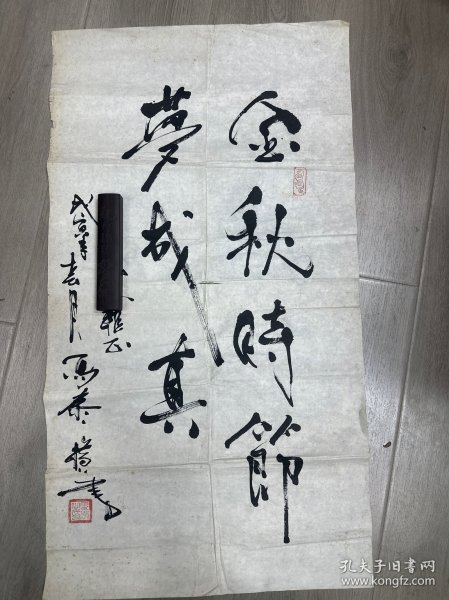 金秋時節
夢成真
雅正
戊寅年春月
書
孔夫子旧书网
www.kongfz.com